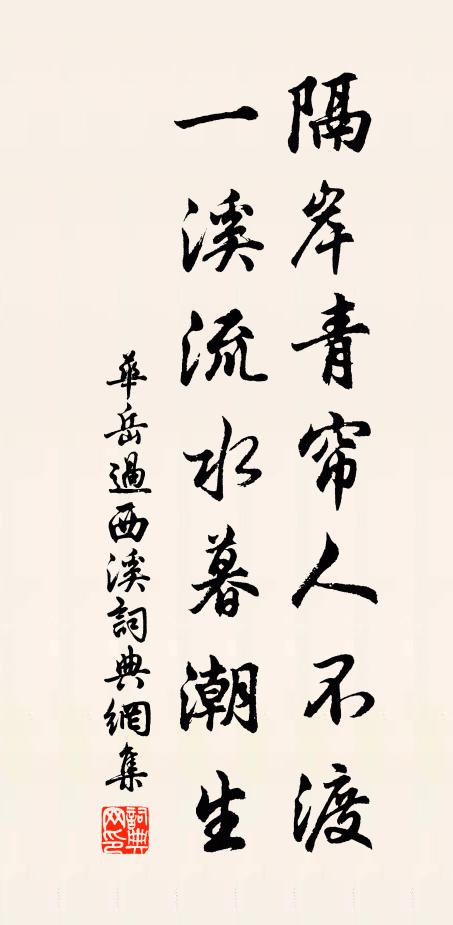 隔岸青帘人不渡
一溪流水暮潮生
華岳過西溪詞典網集
詞典網印